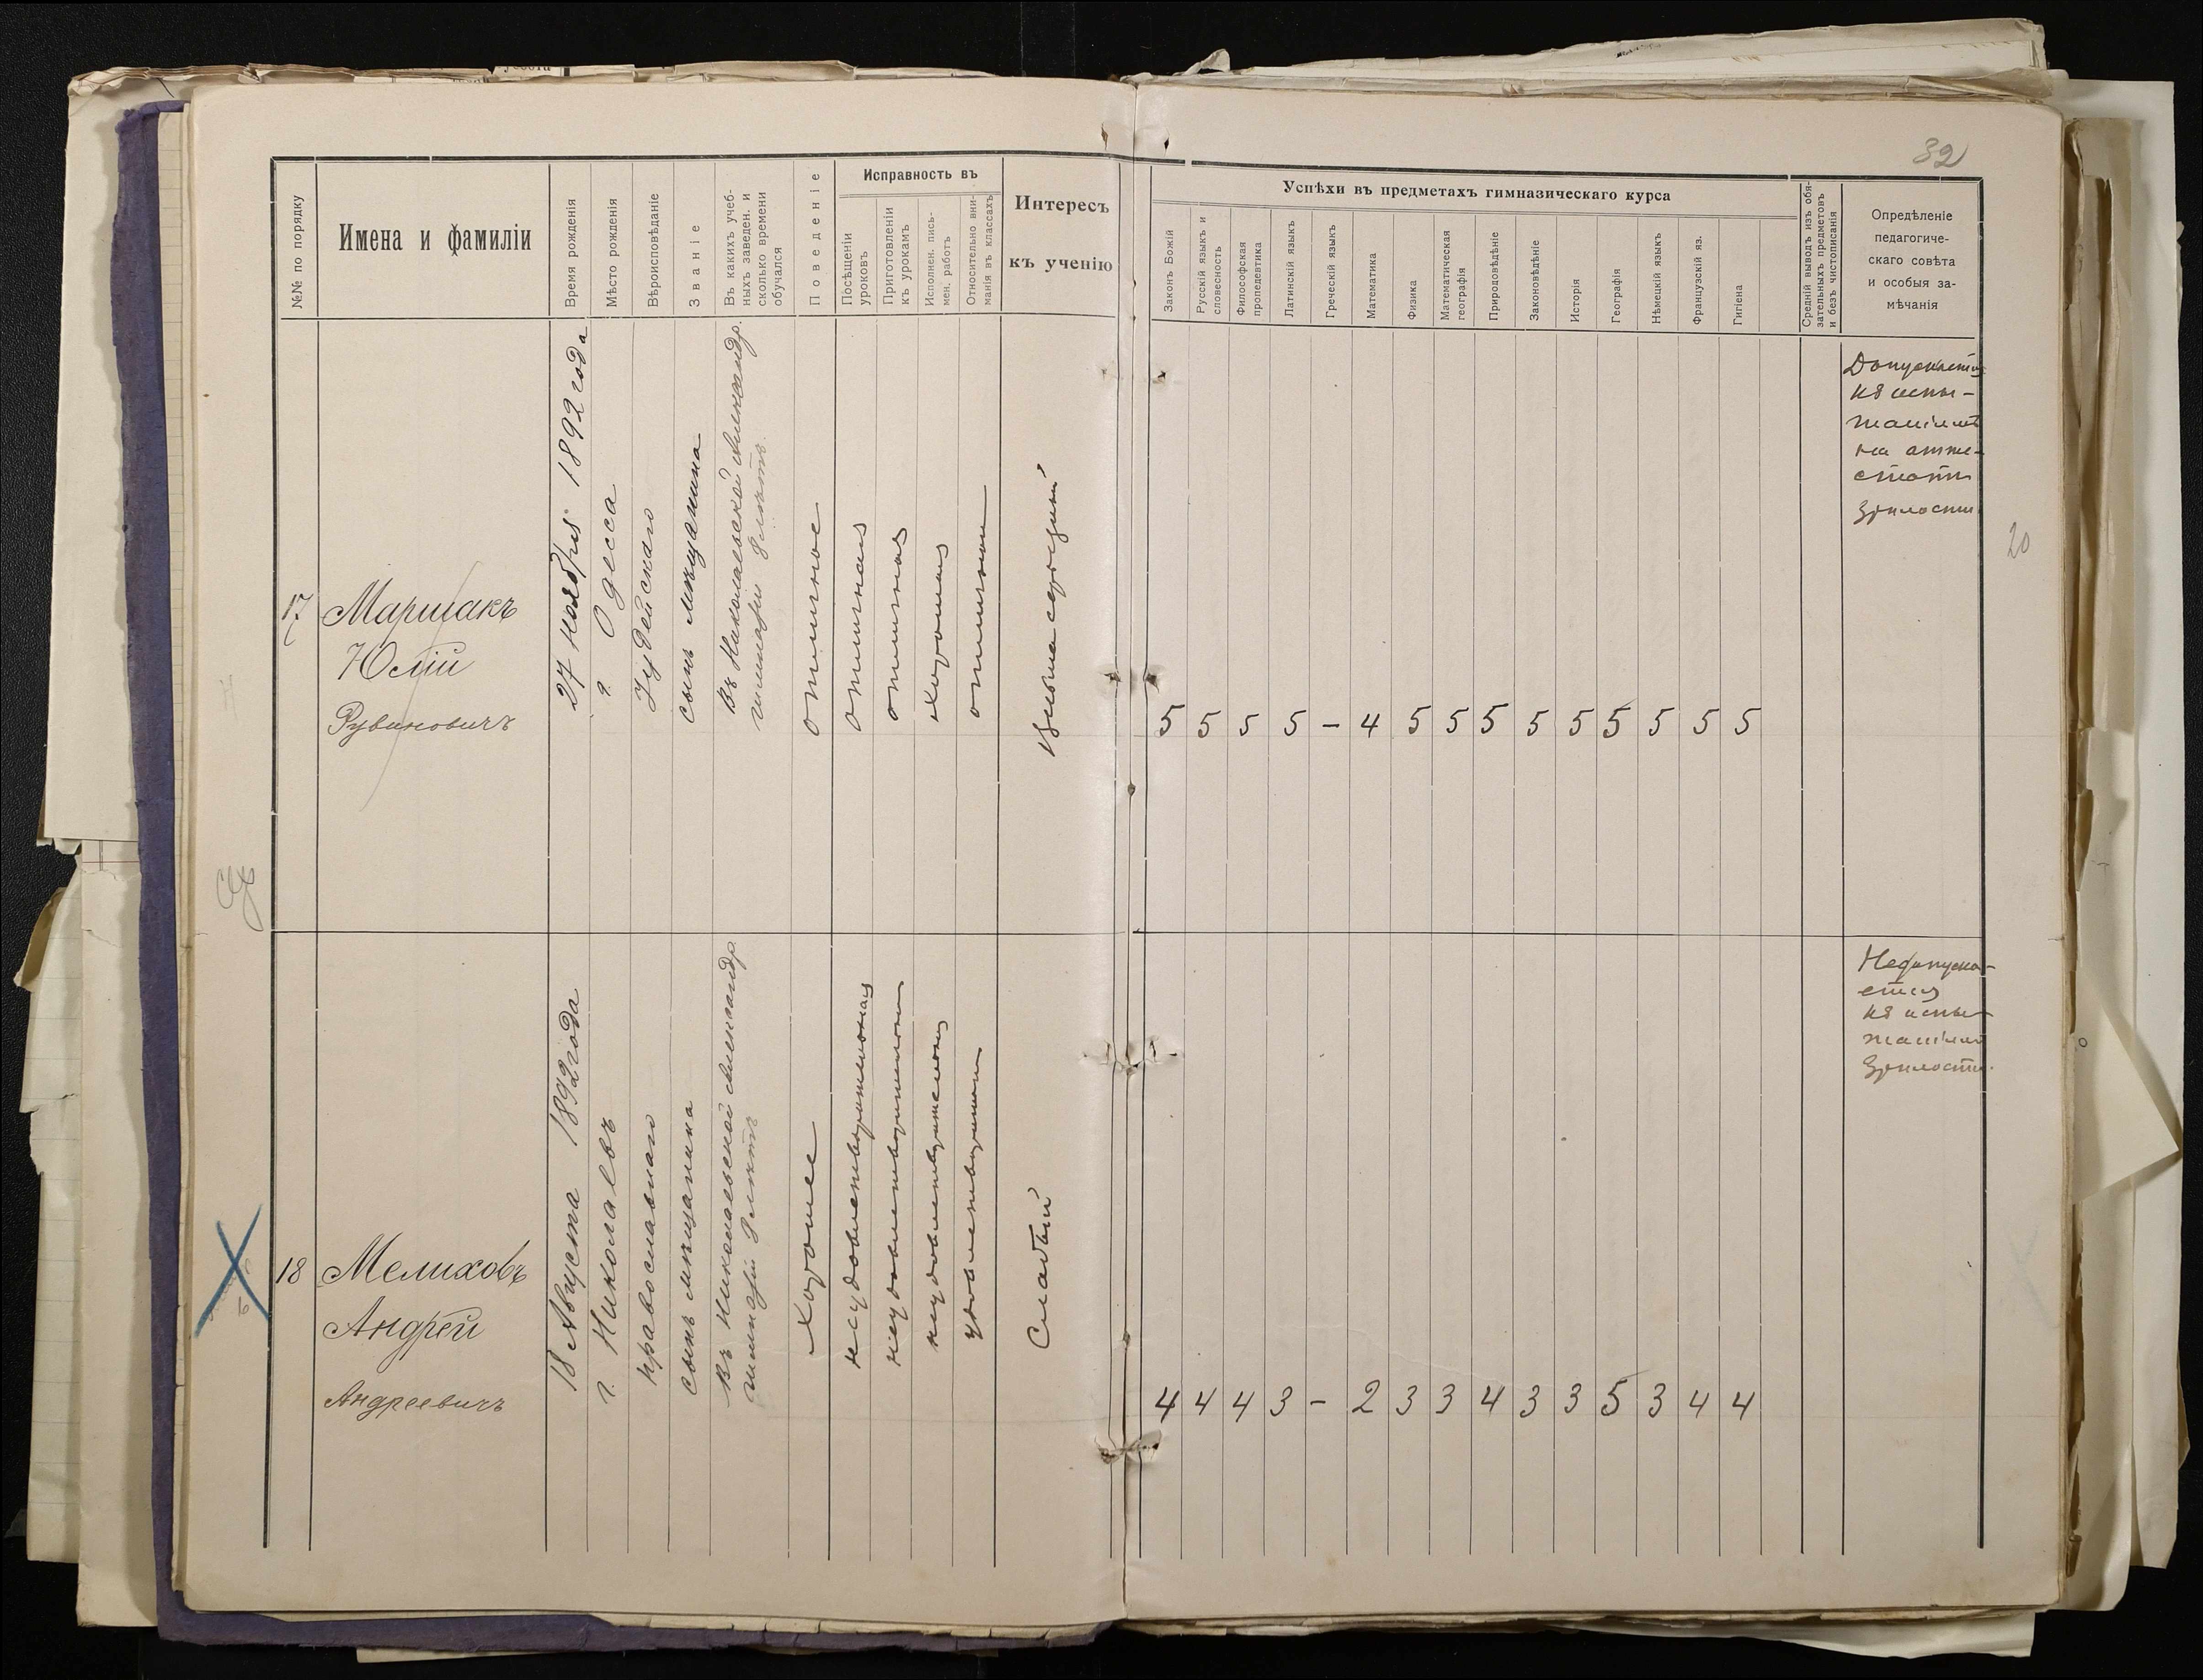 32
№№ по порядку
Имена и фамиліи
Время рожденія
Мѣсто рожденія
Вѣроисповѣданіе
Званіе
Въ какихъ учеб-
ныхъ заведен. и
сколько времени
обучался
Поведеніе
Исправность въ
Посѣщеніи
уроковъ
Приготовленіи
къ урокамъ
Исполнен. пись-
мен. работъ
Относительно вни-
манія въ классахъ
Интересъ
къ ученію
Успѣхи въ предметахъ гимназическаго курса
Законъ Божій
Русскій языкъ и
словесность
Философская
пропедевтика
Латинскій языкъ
Греческій языкъ
Математика
Физика
Математическая
географія
Природовѣдѣніе
Законовѣдѣніе
Исторія
Географія
Нѣмецкій языкъ
Французскій яз.
Гигіена
Средній выводъ изъ обя-
зательныхъ предметовъ
и безъ чистописанія
Опредѣленіе
педагогиче-
скаго совѣта
и особыя за-
мѣчанія
17
Маршакъ
Юлій
Рувиновичъ
27 Ноября 1892 года
г. Одесса
Іудейскаго
сынъ мѣщанина
Въ Николаевской Александр.
гимназіи 8 лѣтъ
отличное
отличная
отличная
хорошая
отличное
Весьма серьезный
5 5 5 5 – 4 5 5 5 5 5 5 5 5 5
Допускается
къ испы-
таніямъ
на атте-
статъ
зрѣлости
20
18
Мелиховъ
Андрей
Андреевичъ
18 Августа 1892 года
г. Николаевъ
православнаго
сынъ мѣщанина
Въ Николаевской Александр.
гимназіи 8 лѣтъ
хорошее
неудовлетворительная
неудовлетворительная
неудовлетворительная
Слабый
4 4 4 3 – 2 3 3 4 3 3 5 3 4 4
Недопуска-
ется
къ испы-
таніямъ
зрѣлости.